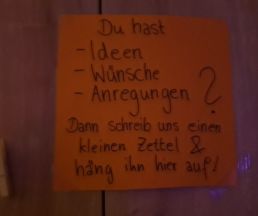 Du hast
- Ideen
- Wünsche
- Anregungen ?
Dann schreib uns einen
kleinen Zettel &
häng ihn hier auf!